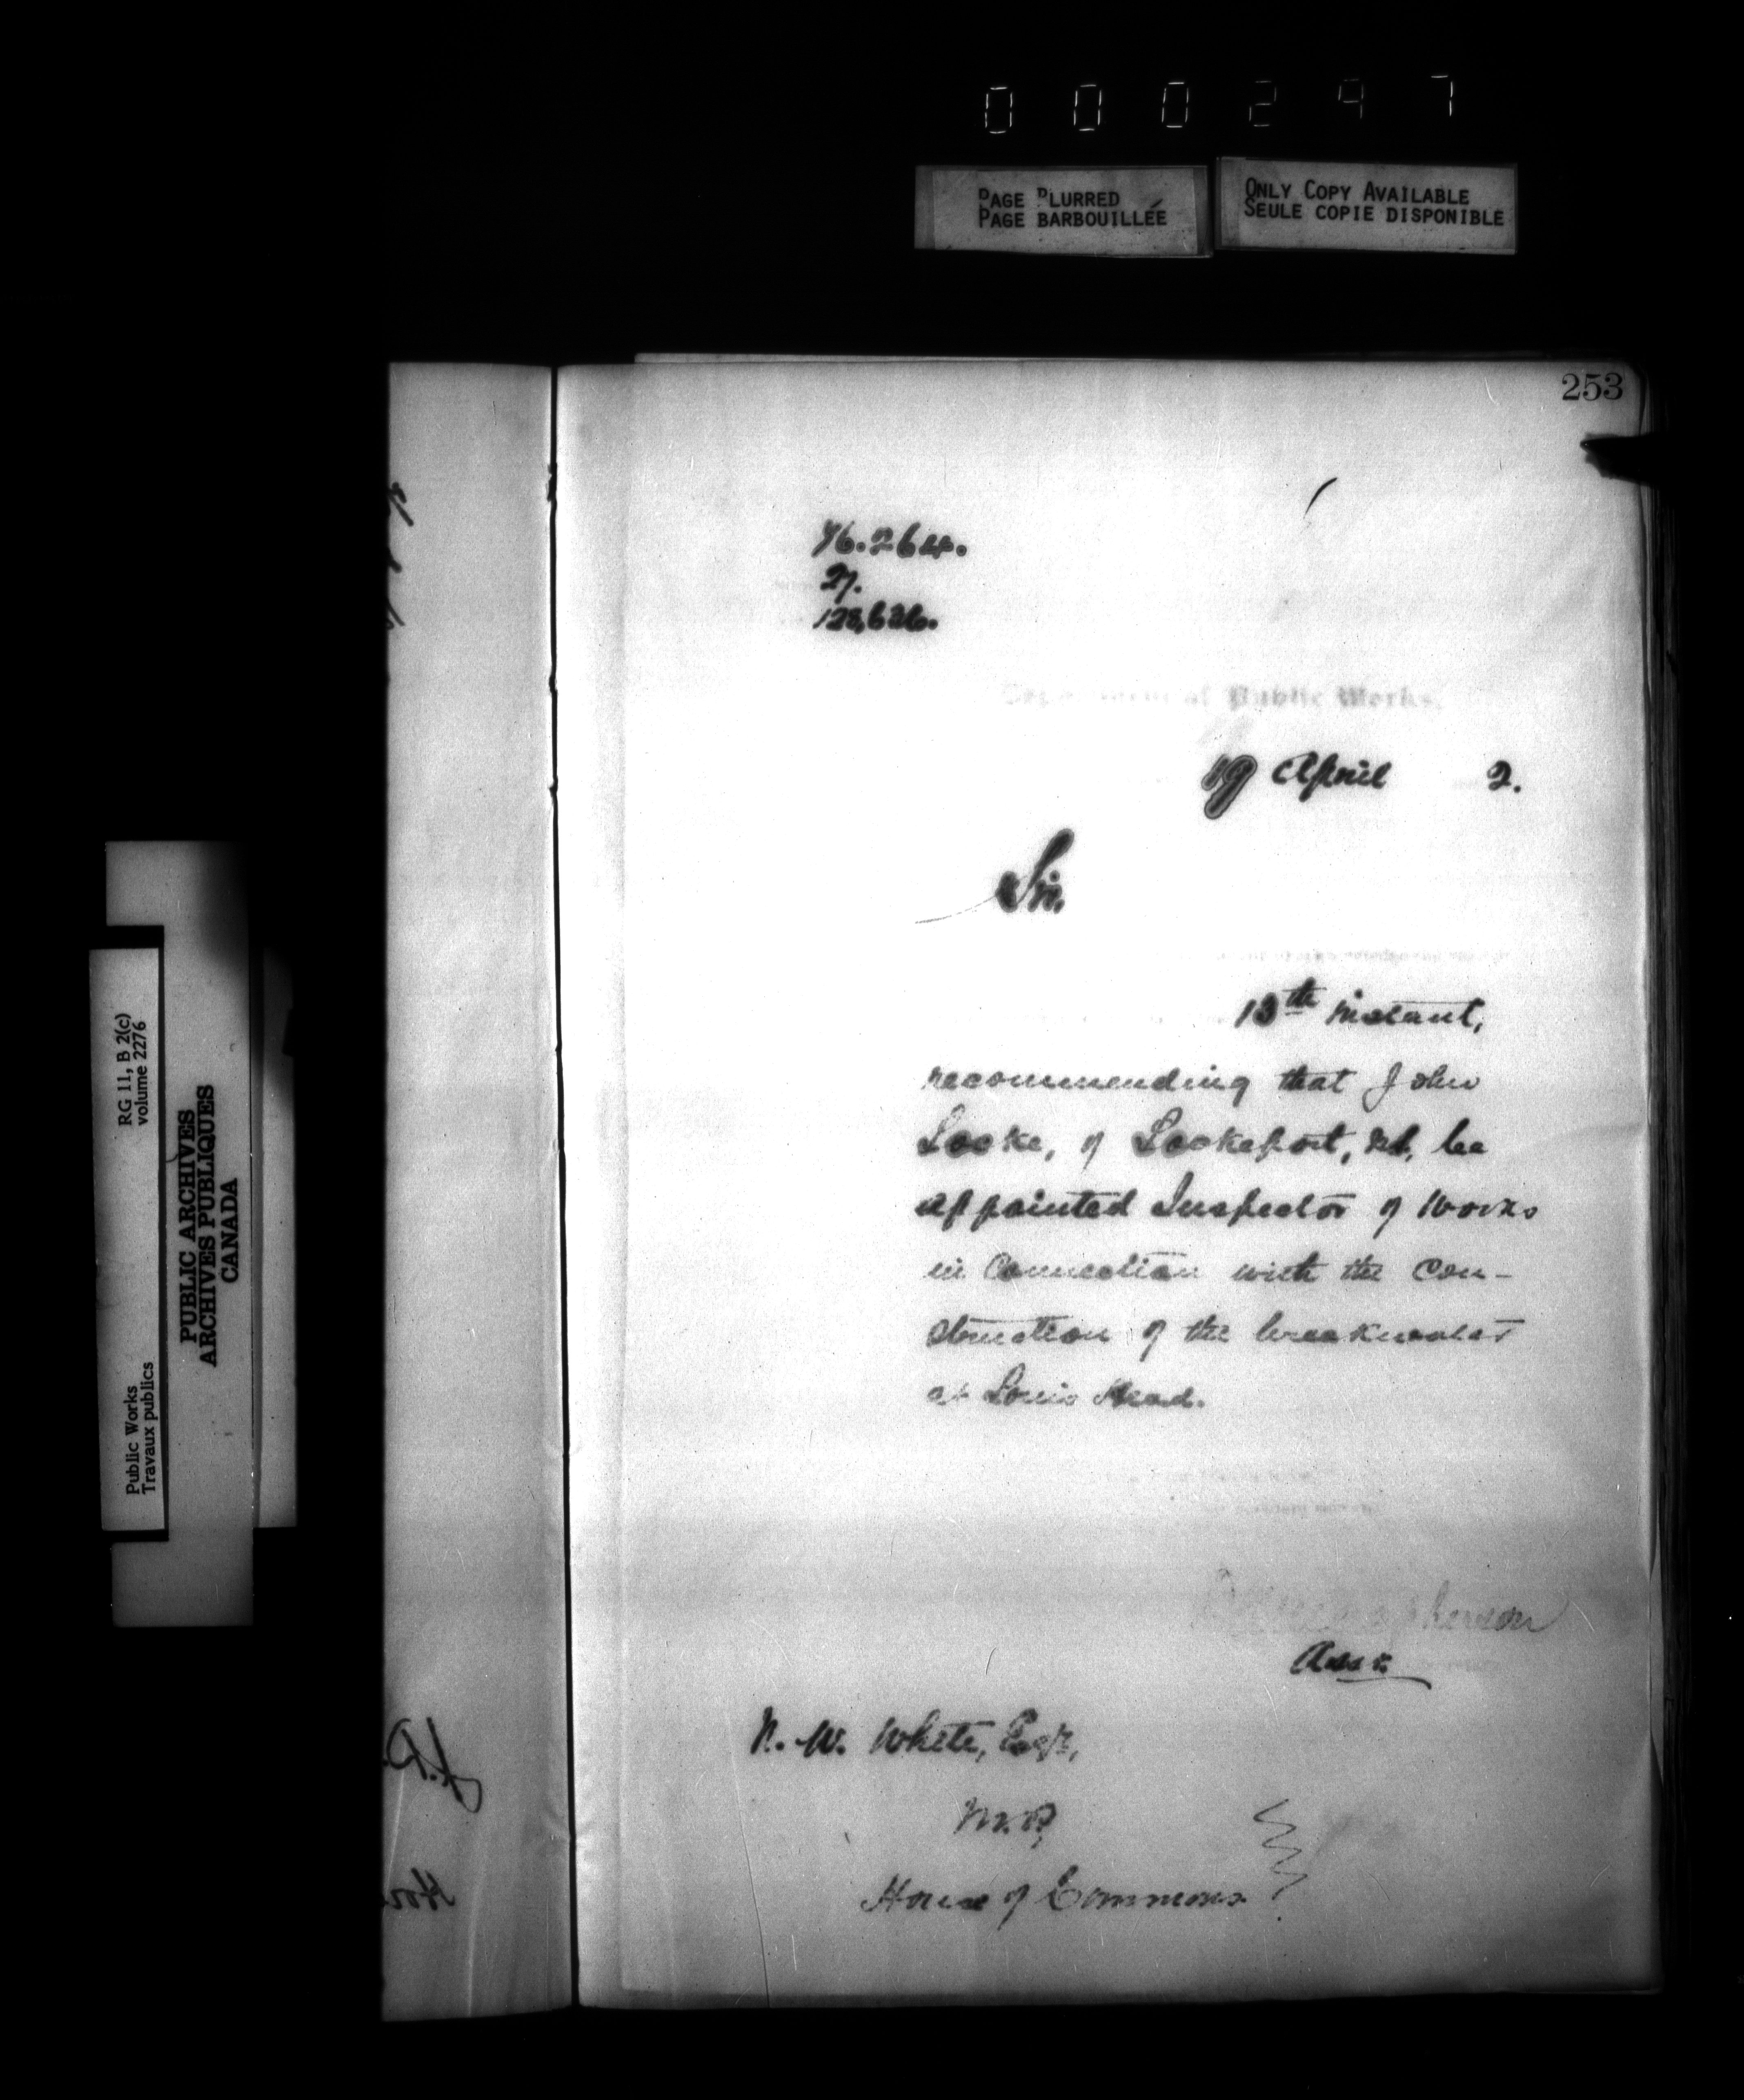 000297
PAGE BLURRED
PAGE BARBOUILLÉE
ONLY COPY AVAILABLE
SEULE COPIE DISPONIBLE
253
76.264.
27.
128,626.
Department of Public Works.
19 April 2.
Sir,
13th instant,
recommending that John
Locke, of Lockeport, N.S. be
appointed Inspector of Works
in connection with the con-
struction of the breakwater
at Louis Head.
Ass S.
N. W. White, Esqr,
M.P,
House of Commons
RG 11, B 2(c)
volume 2276
Public Works
Travaux publics
PUBLIC ARCHIVES
ARCHIVES PUBLIQUES
CANADA